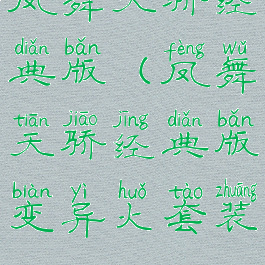 凤舞天骄经
diǎn bǎn fèng wǔ
典版（凤舞
tiān jiāo jīng diǎn bǎn
天骄经典版
biàn yì huǒ tào zhuāng
变异火套装